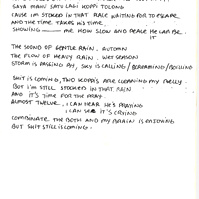 SAYA MAHU SATU LAGI KOPPI TOLONG
CAUSE I'M STOCKED IN THAT RACE WAITING FOR TO ESCAPE
AND THE TIME TAKES HIS TIME
SHOWING ME HOW SLOW AND PEACE HE CAN BE.
IT
THE SOUND OF GENTLE RAIN. AUTUMN
THE FLOW OF HEAVY RAIN. WET SEASON
STORM IS RAGING PM, SKY IS CALLING / SCREAMING / BOILING
SHIT IS COMING, TWO KOPPI'S ARE CLEANING MY BELLY
BUT I'M STILL STOCKED IN THAT RAIN
AND IT'S TIME FOR THE PRAY.
ALMOST TWELVE, I CAN HEAR HE'S PRAYING
I CAN SEE IT'S CRYING
COMBINATE THE BOTH AND MY BRAIN IS ENJOYING
BUT SHIT STILL IS COMING.